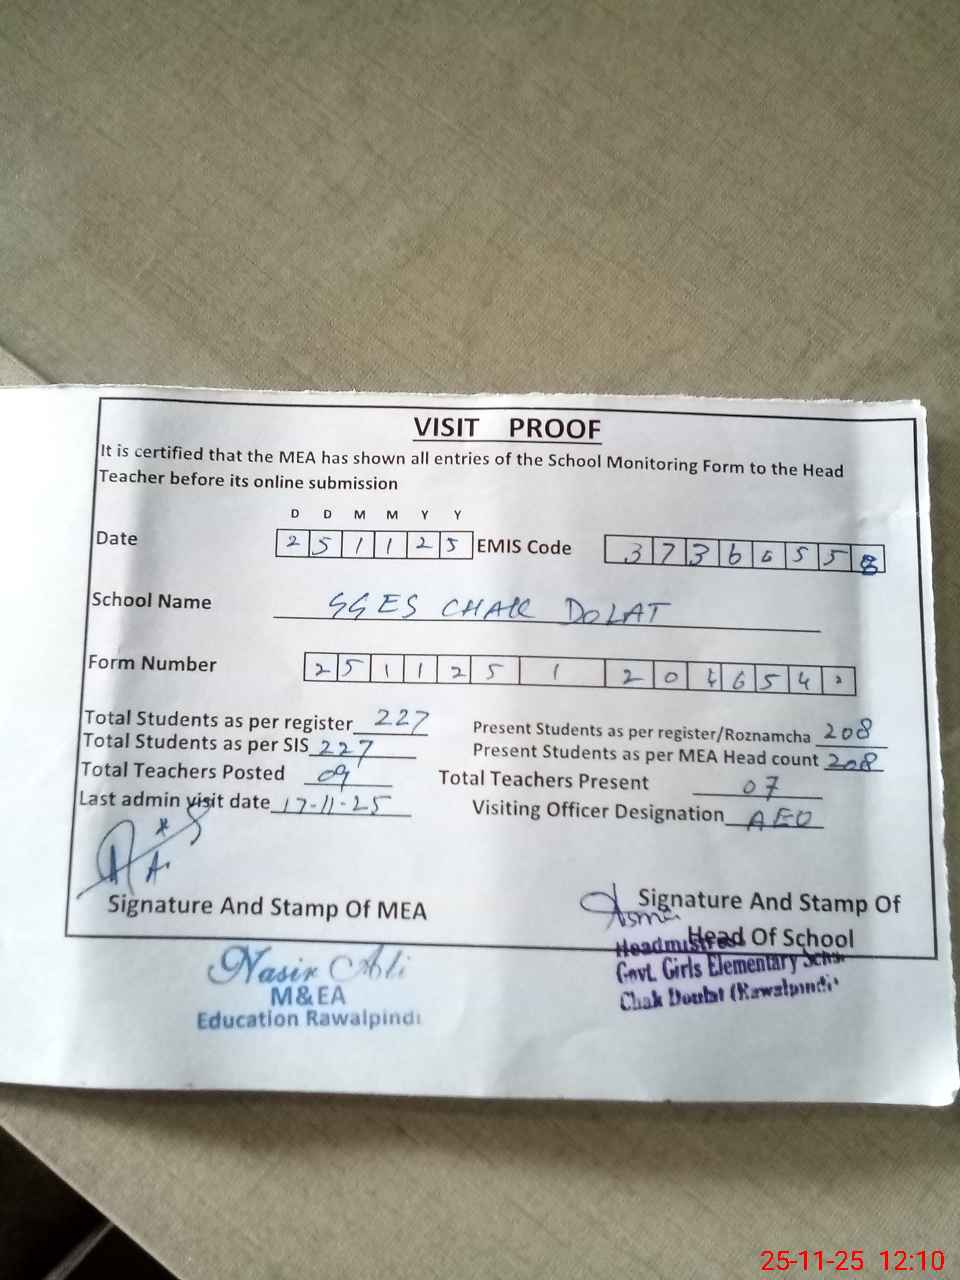 VISIT PROOF
It is certified that the MEA has shown all entries of the School Monitoring Form to the Head
Teacher before its online submission
D D M M Y Y
Date 2 5 1 1 2 5 EMIS Code 3 7 3 6 0 5 5 8
School Name GGES CHAK DOLAT
Form Number 2 5 1 1 2 5 1 2 0 4 6 5 4
Total Students as per register 227 Present Students as per register/Roznamcha 208
Total Students as per SIS 227 Present Students as per MEA Head count 208
Total Teachers Posted 09 Total Teachers Present 07
Last admin visit date 17-11-25 Visiting Officer Designation AEO
Signature And Stamp Of MEA
Signature And Stamp Of
Asma
Head Of School
Headmistress
Govt. Girls Elementary
Chak Doulat (Rawalpindi)
Nasir Ali
M&EA
Education Rawalpindi
25-11-25 12:10